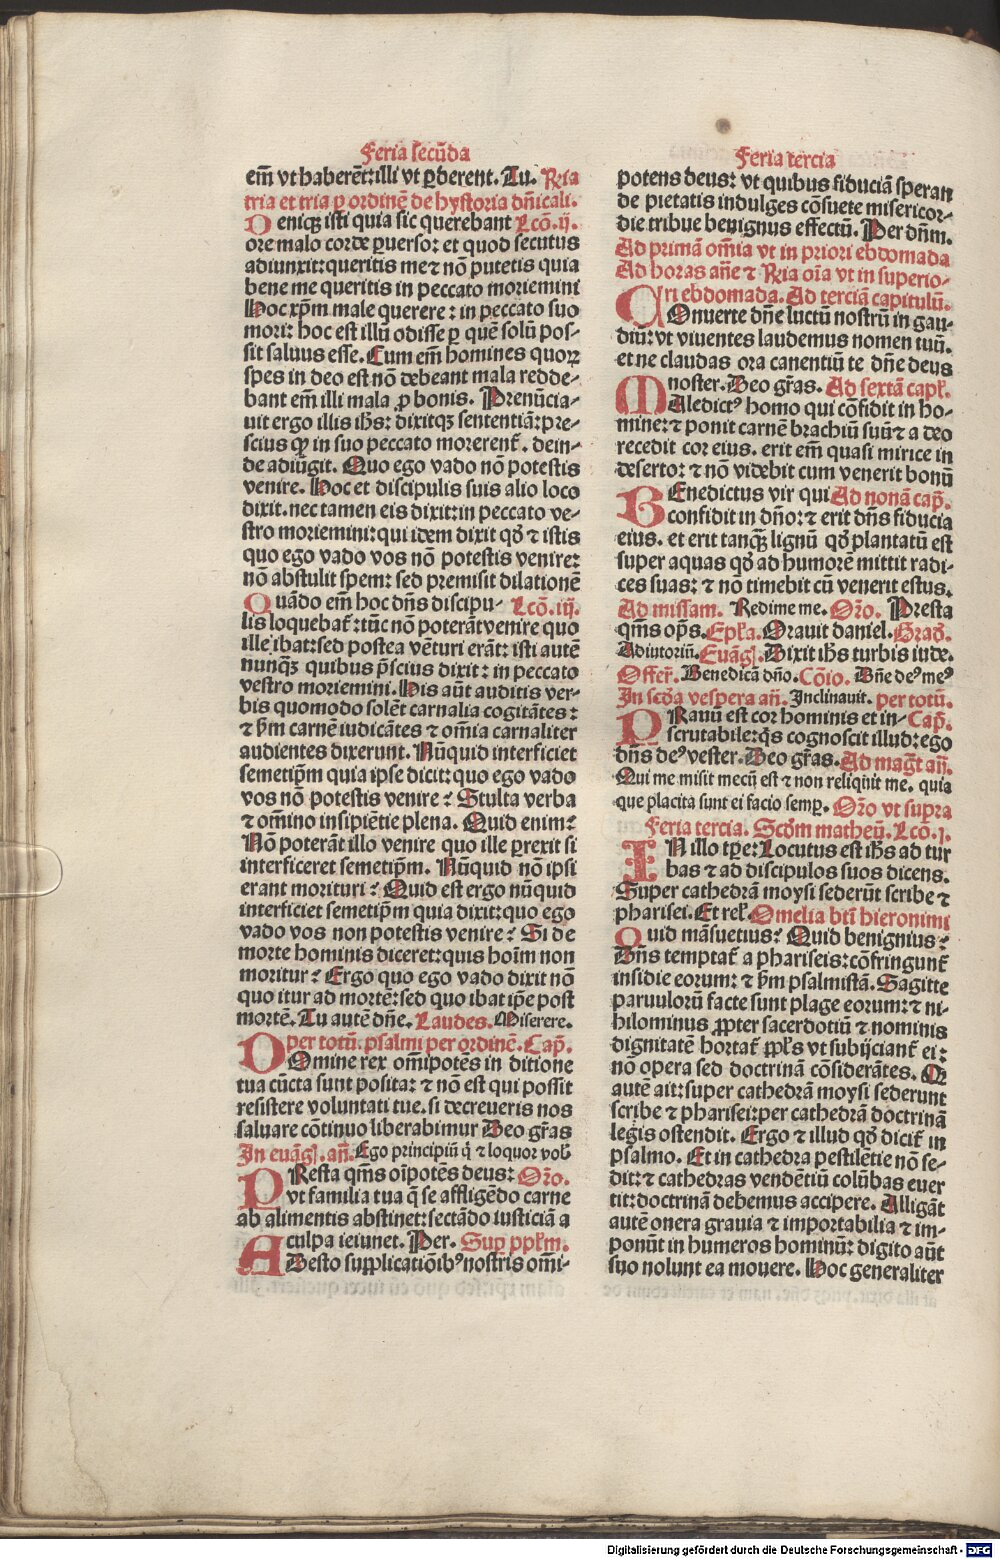 Feria secūda
em̄ vt haberēt: illi vt ꝑderent. Tu. Rr̄ia
tria et tria ꝑ ordinē de hystoria dn̄icali.
Deniqꝫ isti quia sic querebant Lcō. ij.
ore malo corde ꝑuerso: et quod secutus
adiunxit: queritis me ⁊ nō putetis quia
bene me queritis in peccato moriemini
Hoc xp̄m male querere: in peccato suo
mori: hoc est illū odisse ꝑ quē solū pos-
sit saluus esse. Cum em̄ homines quoꝝ
spes in deo est nō debeant mala redde-
bant em̄ illi mala ꝓ bonis. Prenūcia-
uit ergo illis ih̄s: dixitqꝫ sententiā: pre-
scius ꝙ in suo peccato morerent̄. dein-
de adiūgit. Quo ego vado nō potestis
venire. Hoc et discipulis suis alio loco
dixit. nec tamen eis dixit: in peccato ve-
stro moriemini: qui idem dixit qd̄ ⁊ istis
quo ego vado vos nō potestis venire:
nō abstulit spem: sed premisit dilationē
Quādo em̄ hoc dn̄s discipu- Lcō. iij.
lis loquebat̄: tūc nō poterāt venire quo
ille ibat: sed postea vēturi erāt: isti autē
nunqꝫ quibus p̄scius dixit: in peccato
vestro moriemini. His aūt auditis ver-
bis quomodo solēt carnalia cogitātes:
⁊ ẜm carnē iudicātes ⁊ om̄ia carnaliter
audientes dixerunt. Nūquid interficiet
semetip̄m quia ipse dicit: quo ego vado
vos nō potestis venire? Stulta verba
⁊ om̄ino insipiētie plena. Quid enim:
Nō poterāt illo venire quo ille ꝑrexit si
interficeret semetip̄m. Nūquid nō ipsi
erant morituri? Quid est ergo nūquid
interficiet semetip̄m quia dixit: quo ego
vado vos non potestis venire? Si de
morte hominis diceret: quis hoīm non
moritur? Ergo quo ego vado dixit nō
quo itur ad mortē: sed quo ibat ip̄e post
mortē. Tu autē dn̄e. Laudes. Miserere.
per totū. psalmi per ordinē. Cap̄.
DOmine rex om̄ipotēs in ditione
tua cūcta sunt posita: ⁊ nō est qui possit
resistere voluntati tue. si decreueris nos
saluare cōtinuo liberabimur Deo gr̄as
In euāgl̄. an̄. Ego principiū q̄ ⁊ loquor vob̄
PResta qm̄s oīpotēs deus: Or̄o.
vt familia tua q̄ se affligēdo carne
ab alimentis abstinet: sectādo iusticiā a
culpa ieiunet. Per. Sup pp̄lm.
ADesto supplicatiōibꝰ nostris om̄i-
Feria tercia
potens deus: vt quibus fiduciā speran
de pietatis indulges cōsuete misericor-
die tribue benignus effectū. Per dn̄m.
Ad primā om̄ia vt in priori ebdomada
Ad horas an̄e ⁊ Rr̄ia oīa vt in superio-
ri ebdomada. Ad terciā capitulū.
COnuerte dn̄e luctū nostrū in gau-
diū: vt viuentes laudemus nomen tuū.
et ne claudas ora canentiū te dn̄e deus
noster. Deo gr̄as. Ad sextā capl̄.
MAledictꝰ homo qui cōfidit in ho-
mine: ⁊ ponit carnē brachiū suū ⁊ a deo
recedit cor eius. erit em̄ quasi mirice in
deserto: ⁊ nō videbit cum venerit bonū
BEnedictus vir qui Ad nonā cap̄.
confidit in dn̄o: ⁊ erit dn̄s fiducia
eius. et erit tanqꝫ lignū qd̄ plantatū est
super aquas qd̄ ad humorē mittit radi-
ces suas: ⁊ nō timebit cū venerit estus.
Ad missam. Redime me. Or̄o. Presta
qm̄s op̄s. Epl̄a. Orauit daniel. Grad̄.
Adiutoriū. Euāgl̄. Dixit ih̄s turbis iude.
Offer̄. Benedicā dn̄o. Cōio. Dn̄e deꝰ meꝰ
In scd̄a vespera an̄. Inclinauit. per totū.
PRauū est cor hominis et in- Cap̄.
scrutabile: qs̄ cognoscit illud: ego
dn̄s deꝰ vester. Deo gr̄as. Ad magt̄ an̄.
Qui me misit mecū est ⁊ non reliqnit me. quia
que placita sunt ei facio semꝑ. Or̄o vt supra
Feria tercia. Scd̄m matheū. Lcō. j.
IN illo tꝑe: Locutus est ih̄s ad tur
bas ⁊ ad discipulos suos dicens.
Super cathedrā moysi sederūt scribe ⁊
pharisei. Et rel̄. Omelia bt̄i hieronimi
Quid māsuetius? Quid benignius?
Dn̄s temptat̄ a phariseis: cōfringunt̄
insidie eorum: ⁊ ẜm psalmistā. Sagitte
paruulorū facte sunt plage eorum: ⁊ ni-
hilominus ꝓpter sacerdotiū ⁊ nominis
dignitatē hortat̄ ppl̄s vt subijciant̄ ei:
nō opera sed doctrinā cōsiderātes. Q
autē ait: super cathedrā moysi sederunt
scribe ⁊ pharisei: per cathedrā doctrinā
legis ostendit. Ergo ⁊ illud qd̄ dicit̄ in
psalmo. Et in cathedra pestilētie nō se-
dit: ⁊ cathedras vendētiū colūbas euer
tit: doctrinā debemus accipere. Alligāt
autē onera grauia ⁊ importabilia ⁊ im-
ponūt in humeros hominū: digito aūt
suo nolunt ea mouere. Hoc generaliter
Digitalisierung gefördert durch die Deutsche Forschungsgemeinschaft - DFG